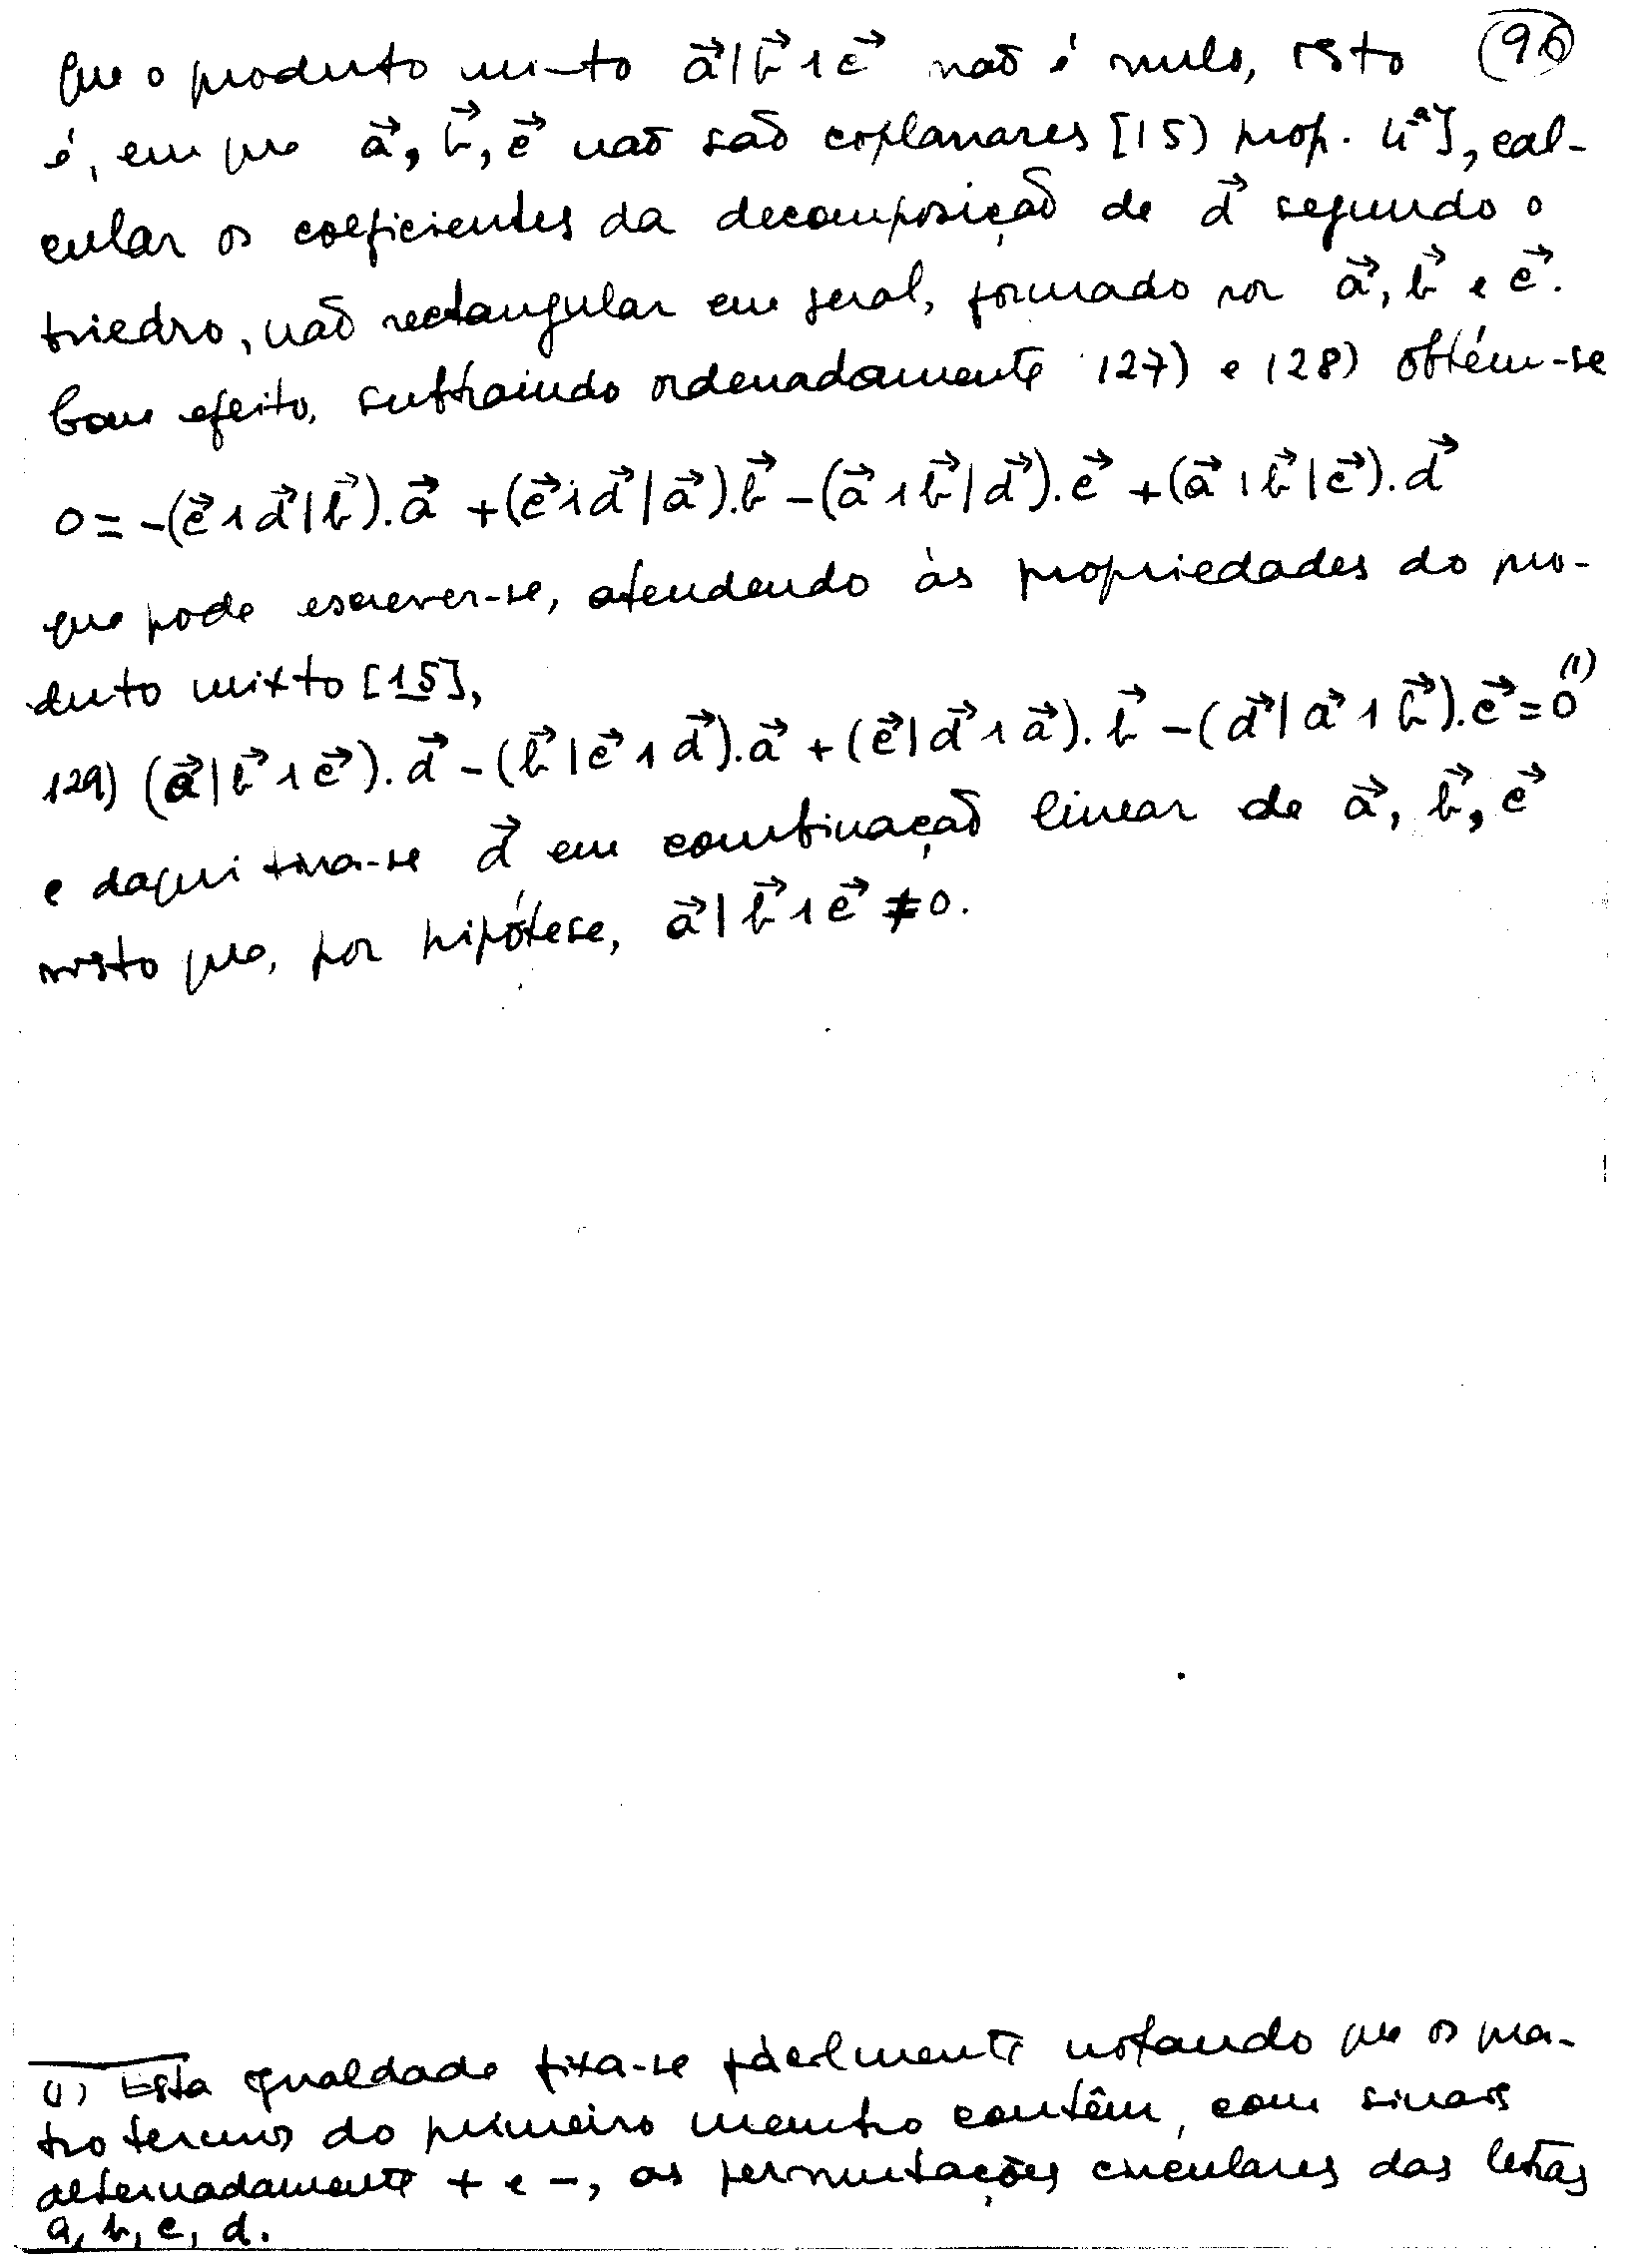 que o produto mixto a⃗|b⃗∧c⃗ não é nulo, isto (96)
é, em que a⃗, b⃗, c⃗ não são coplanares [15) prop. 4ª], cal-
cular os coeficientes da decomposição de d⃗ segundo o
triedro, não rectangular em geral, formado por a⃗, b⃗ e c⃗.
Com efeito, subtraindo ordenadamente 127) e 128) obtém-se
0 = -(c⃗∧d⃗|b⃗).a⃗ + (c⃗∧d⃗|a⃗).b⃗ - (a⃗∧b⃗|d⃗).c⃗ + (a⃗∧b⃗|c⃗).d⃗
que pode escrever-se, atendendo às propriedades do pro-
duto mixto [15],
129) (a⃗|b⃗∧c⃗).d⃗ - (b⃗|c⃗∧d⃗).a⃗ + (c⃗|d⃗∧a⃗).b⃗ - (d⃗|a⃗∧b⃗).c⃗ = 0 (1)
e daqui tira-se d⃗ em combinação linear de a⃗, b⃗, c⃗
visto que, por hipótese, a⃗|b⃗∧c⃗ ≠ 0.
(1) Esta igualdade fixa-se fàcilmente notando que os qua-
tro termos do primeiro membro contêm, com sinais
alternadamente + e -, as permutações circulares das letras
a, b, c, d.